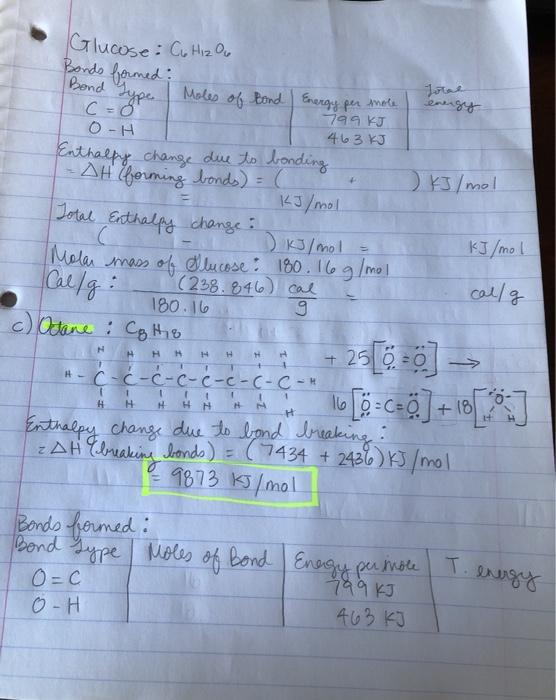 Glucose: C6H12O6
Bonds formed:
Bond Type | Moles of Bond | Energy per mole | Total energy
C = O 799 KJ
O - H 463 KJ
Enthalpy change due to bonding
= ΔH (forming bonds) = ( + ) KJ/mol
= KJ/mol
Total Enthalpy change:
( - ) KJ/mol = KJ/mol
Molar mass of Glucose: 180.16 g/mol
Cal/g: (238.846) cal = cal/g
180.16 g
c) Octane: C8H18
H H H H H H H H
H - C - C - C - C - C - C - C - C - H + 25 [O = O] →
H H H H H H H H 16 [O = C = O] + 18 [H O H]
Enthalpy change due to bond breaking:
= ΔH (breaking bonds) = (7434 + 2436) KJ/mol
= 9873 KJ/mol
Bonds formed:
Bond Type | Moles of Bond | Energy per mole | T. energy
O = C 799 KJ
O - H 463 KJ